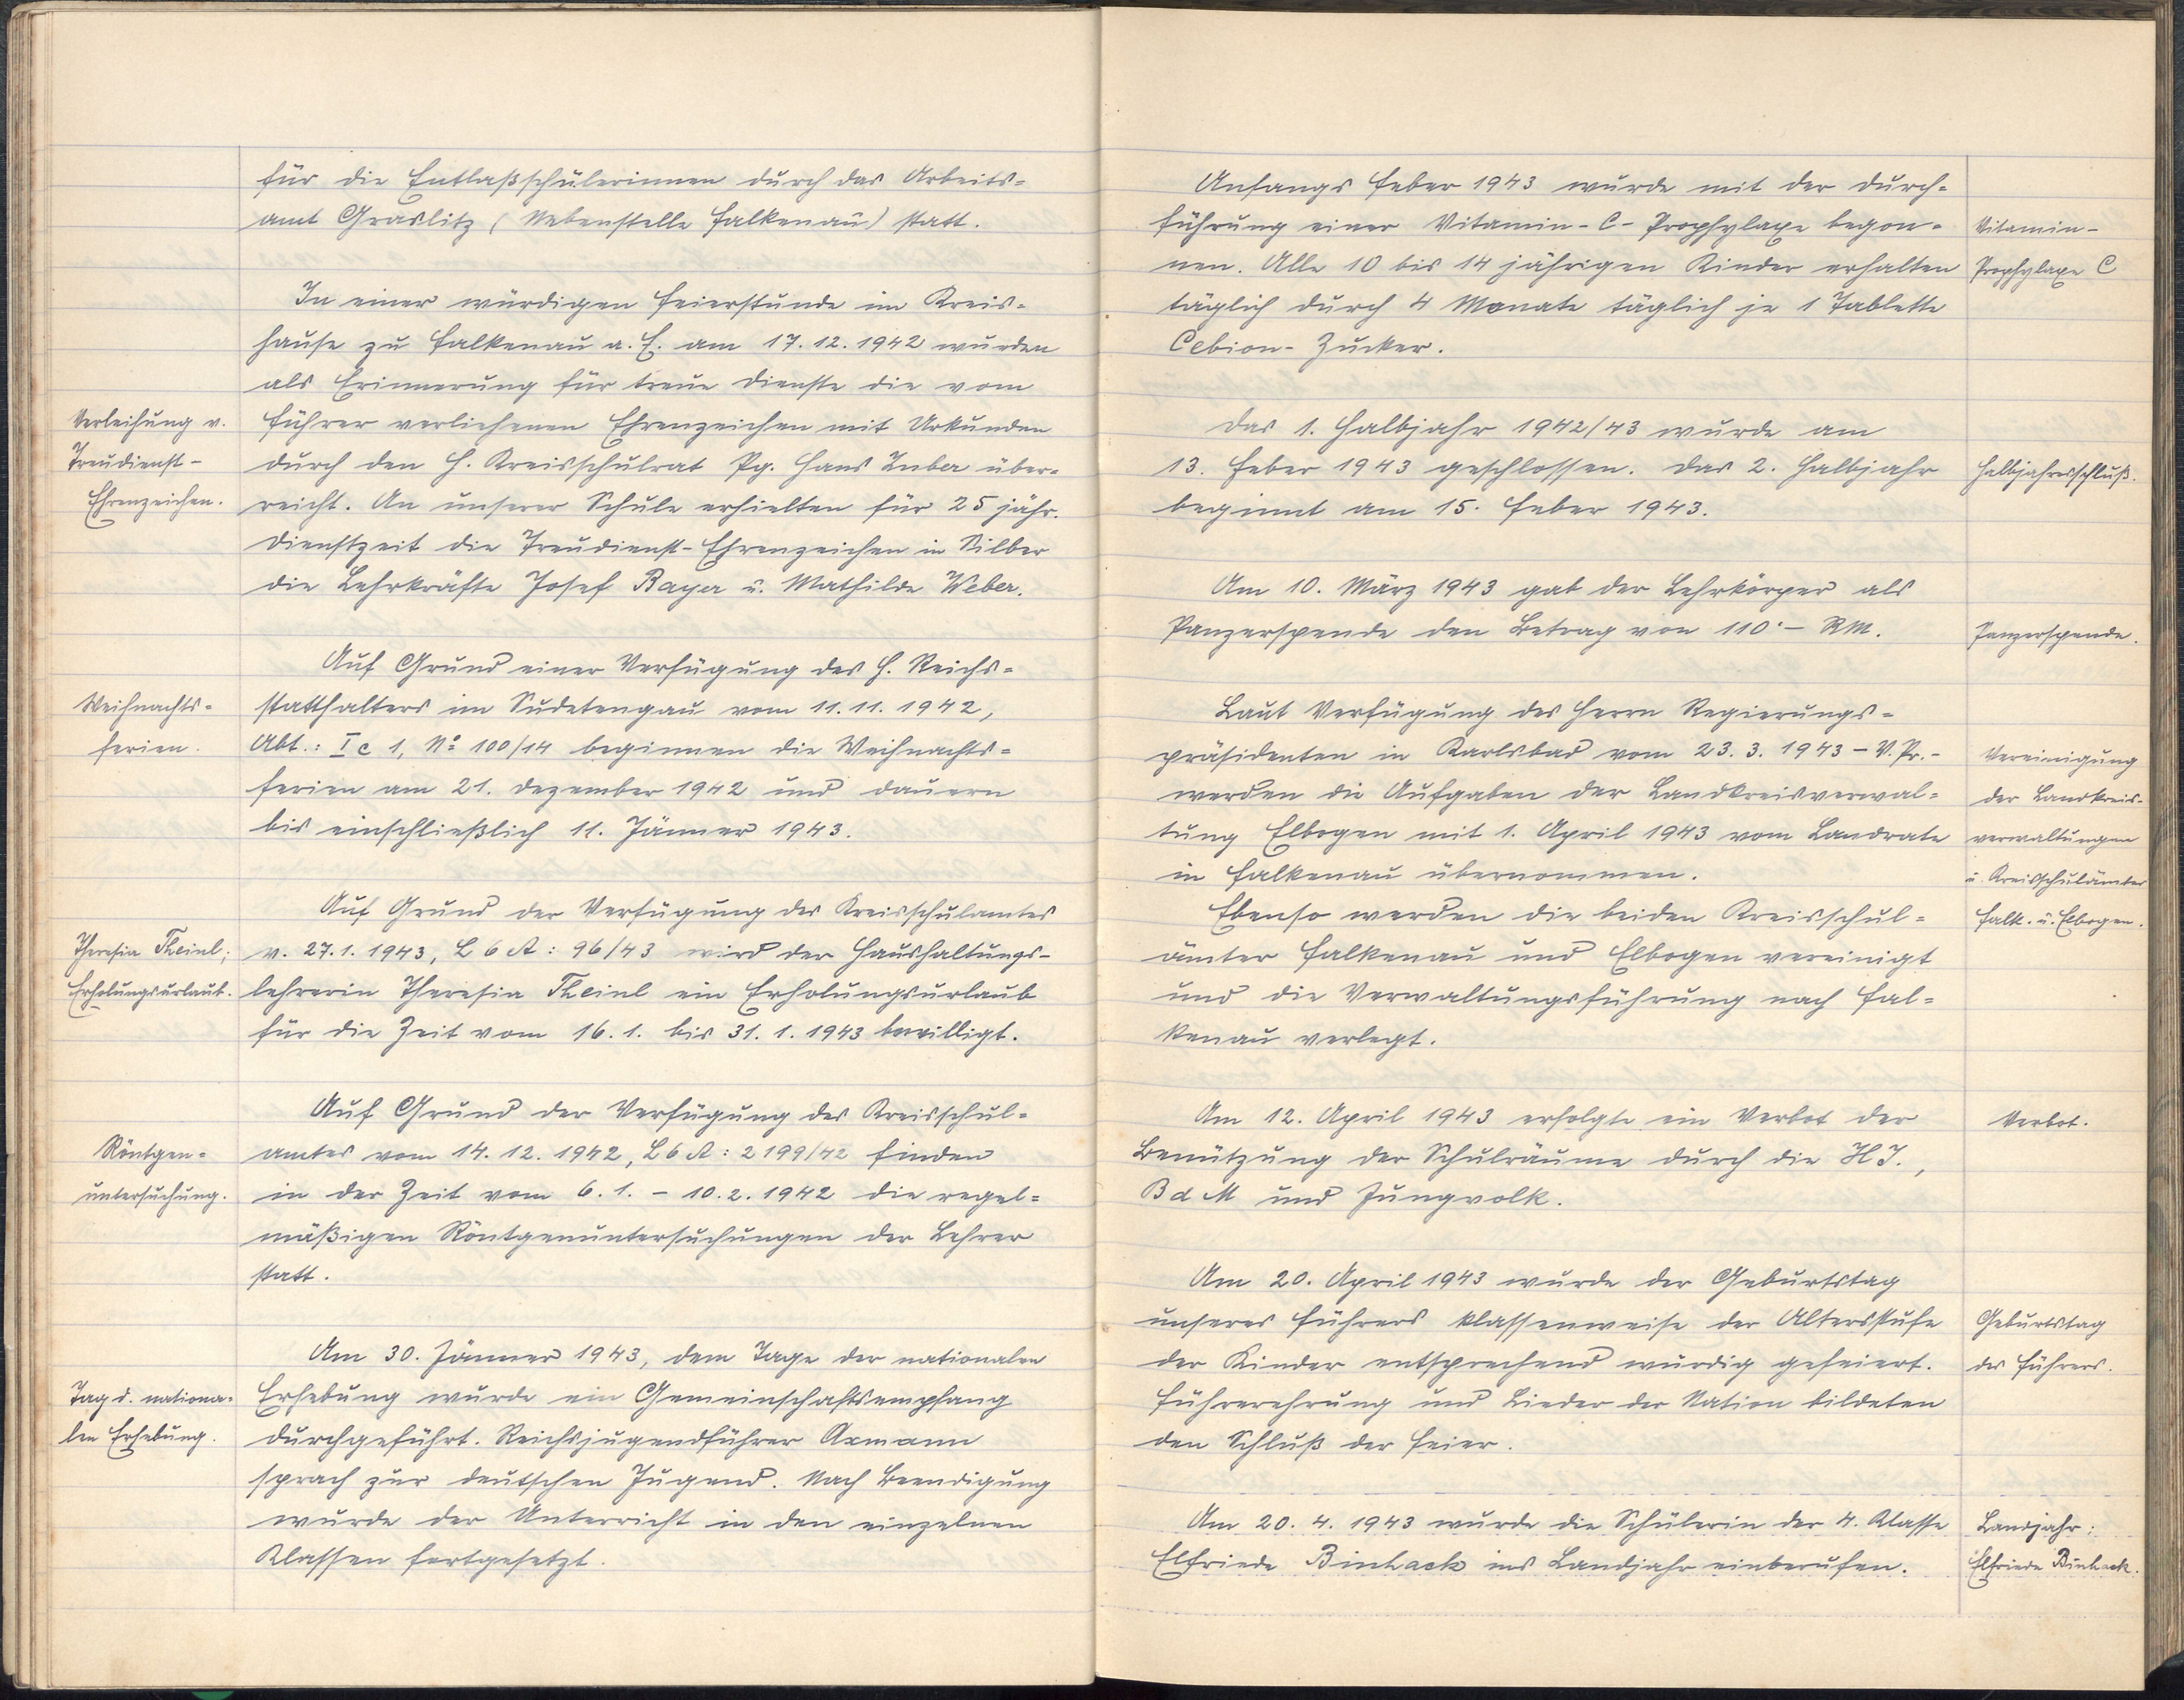 für die Entlaßschülerinnen durch das Arbeits=
amt Graslitz (Nebenstelle Falkenau) statt.
In einer würdigen Feierstunde im Kreis=
hause zu Falkenau a. E. am 17. 12. 1942 wurden
als Erinnerung für treue Dienste die vom
Verleihung v.
Führer verliehenen Ehrenzeichen mit Urkunden
Treudienst-
durch den H. Kreisschulrat Pg. Hans Zuber über=
Ehrenzeichen.
reicht. An unserer Schule erhielten für 25 jähr.
Dienstzeit die Treudienst-Ehrenzeichen in Silber
die Lehrkräfte Josef Bayer u. Mathilde Weber.
Auf Grund einer Verfügung des H. Reichs=
Weihnachts=
statthalters im Sudetengau vom 11. 11. 1942,
ferien.
Abt.: I c 1, No 100/14 beginnen die Weihnachts=
ferien am 21. Dezember 1942 und dauern
bis einschließlich 11. Jänner 1943.
Auf Grund der Verfügung des Kreisschulamtes
Theresia Theinl;
v. 27. 1. 1943, L 6 A : 96/43 wird der Haushaltungs-
Erholungsurlaub.
lehrerin Theresia Theinl ein Erholungsurlaub
für die Zeit vom 16. 1. bis 31. 1. 1943 bewilligt.
Auf Grund der Verfügung des Kreisschul=
Röntgen=
amtes vom 14. 12. 1942, L 6 A : 2199/42 finden
untersuchung.
in der Zeit vom 6. 1. - 10. 2. 1942 die regel=
mäßigen Röntgenuntersuchungen der Lehrer
statt.
Am 30. Jänner 1943, dem Tage der nationalen
Tag d. nationa=
Erhebung wurde ein Gemeinschaftsempfang
len Erhebung.
durchgeführt. Reichsjugendführer Axmann
sprach zur deutschen Jugend. Nach Beendigung
wurde der Unterricht in den einzelnen
Klassen fortgesetzt.
Anfangs Feber 1943 wurde mit der Durch=
führung einer Vitamin-C-Prophylaxe begon=
Vitamin-
nen. Alle 10 bis 14 jährigen Kinder erhalten
Prophylaxe C
täglich durch 4 Monate täglich je 1 Tablette
Cebion-Zucker.
Das 1. Halbjahr 1942/43 wurde am
13. Feber 1943 geschlossen. Das 2. Halbjahr
Halbjahresschluß.
beginnt am 15. Feber 1943.
Am 10. März 1943 gab der Lehrkörper als
Panzerspende den Betrag von 110·- RM.
Panzerspende.
Laut Verfügung des Herrn Regierungs=
präsidenten in Karlsbad vom 23. 3. 1943 - V. Pr. -
Vereinigung
werden die Aufgaben der Landkreisverwal=
der Landkreis-
tung Elbogen mit 1. April 1943 vom Landrate
verwaltungen
in Falkenau übernommen.
u. Kreisschulämter
Ebenso werden die beiden Kreisschul=
Falk. u. Elbogen.
ämter Falkenau und Elbogen vereinigt
und die Verwaltungsführung nach Fal=
kenau verlegt.
Am 12. April 1943 erfolgte ein Verbot der
Verbot.
Benützung der Schulräume durch die HJ.,
B d M und Jungvolk.
Am 20. April 1943 wurde der Geburtstag
unseres Führers klassenweise der Altersstufe
Geburtstag
der Kinder entsprechend würdig gefeiert.
des Führers.
Führerehrung und Lieder der Nation bildeten
den Schluß der Feier.
Am 20. 4. 1943 wurde die Schülerin der 4. Klasse
Landjahr:
Elfriede Binhack ins Landjahr einberufen.
Elfriede Binhack.